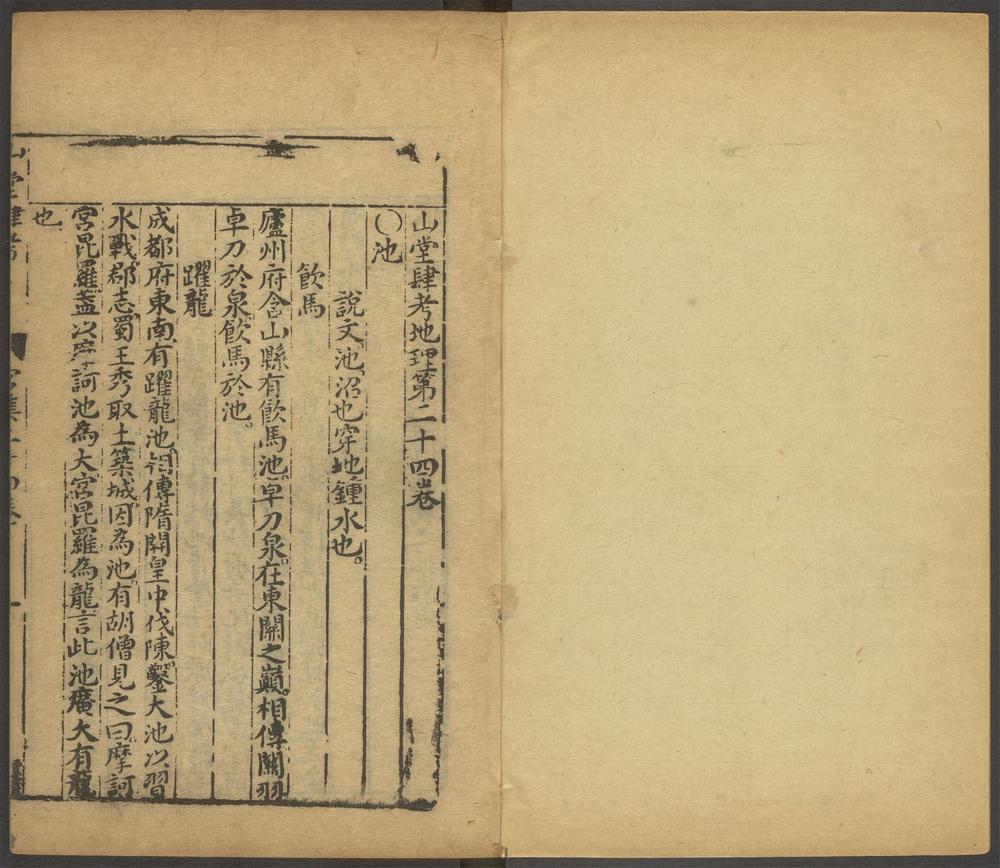 山堂肆考地理第二十四卷
〇池
說文、池、沼也、穿地鍾水也。
飲馬
廬州府含山縣有飲馬池。卓刀泉。在東關之巔。相傳關羽
卓刀於泉。飲馬於池。
躍龍
成都府東南、有躍龍池。相傳隋開皇中伐陳。鑿大池以習
水戰。郡志、蜀王秀取土築城。因為池。有胡僧見之曰。摩訶
宮毘羅。盖以摩訶池為大。宮毘羅為龍。言此池廣大有龍
也
山堂肆考